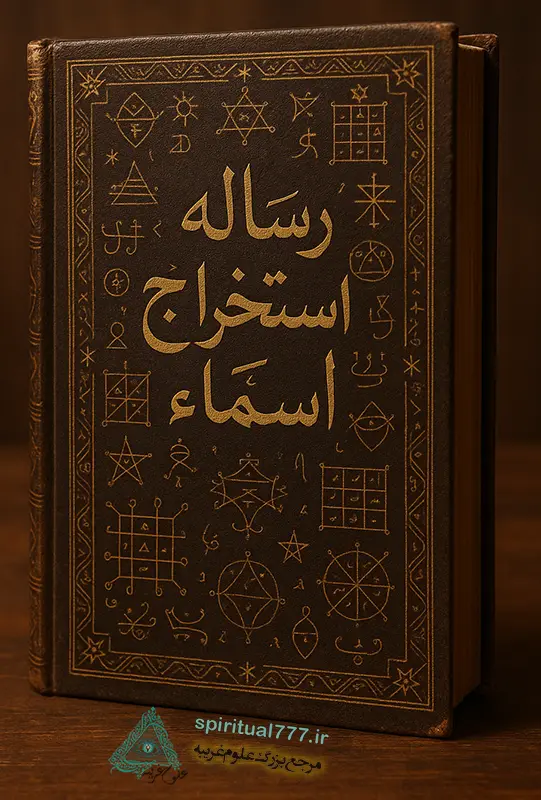 رساله
استخراج
اسماء
spiritual777.ir
مرجع بزرگ علوم غریبه
علوم غریبه